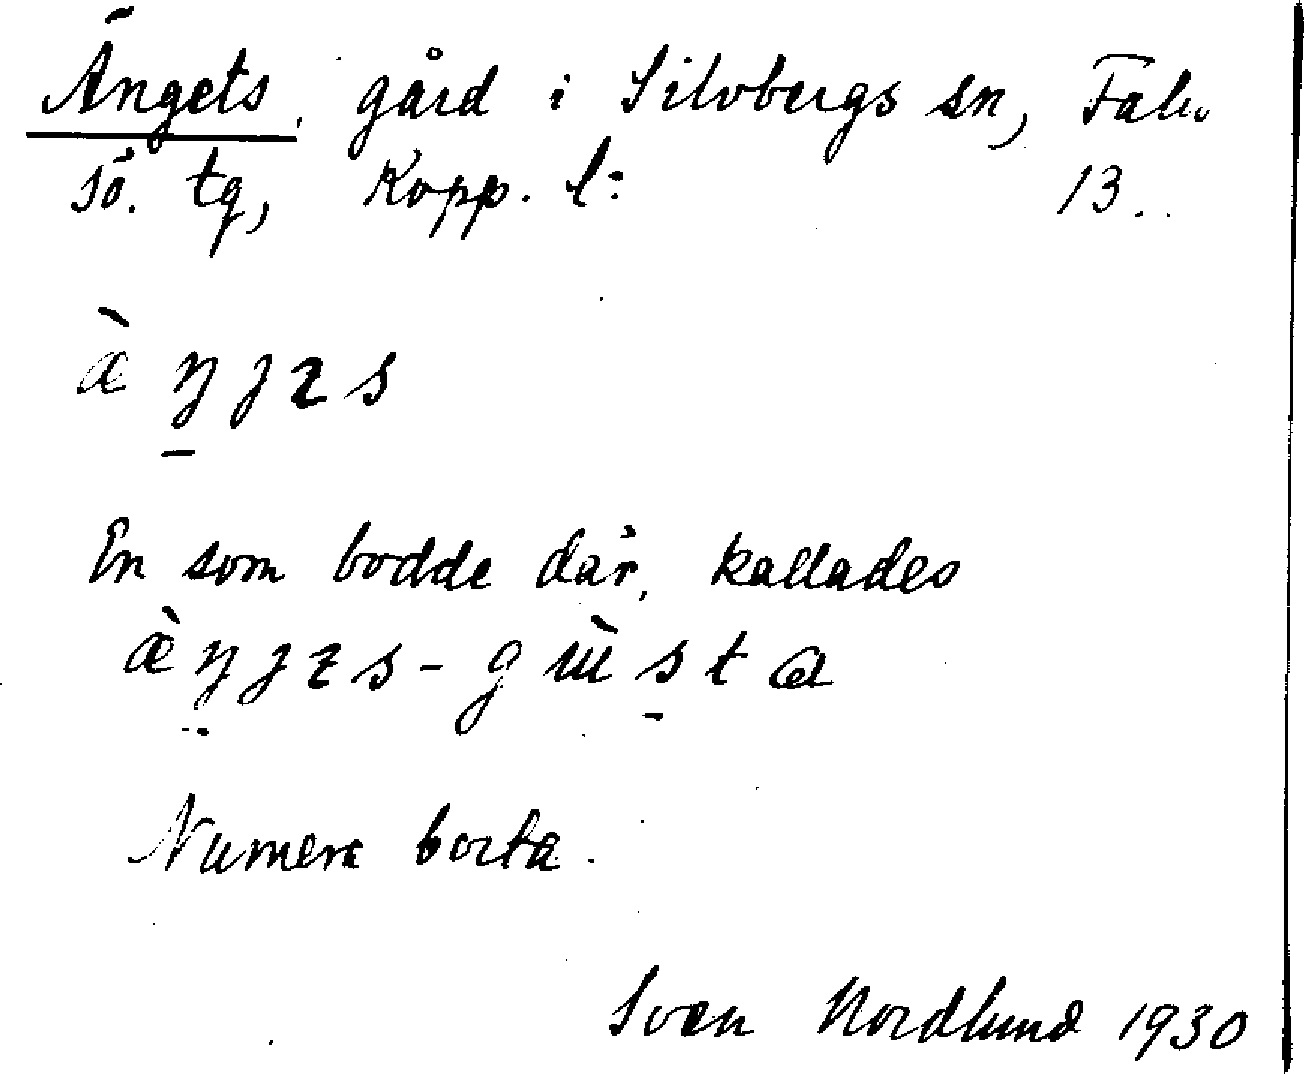 Ängets, gård i Silvbergs sn, Falu
sö. tg, Kopp. l:
13.
En som bodde där, kallades
Numera borta.
Sven Nordlund 1930